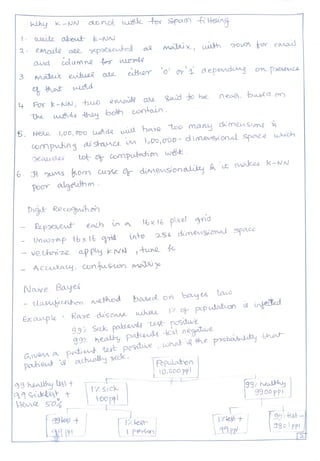 Why K-NN donot work for spam filtering
1. write about K-NN
2. emails are represented as matrix, with rows for email
and columns for words
3 matrix values are either '0' or '1' depending on presence
of that word
4 For K-NN, two emails are said to be near, based on
the words they both contain.
5. Here 1,00,000 words will have too many dimensions &
computing distance in 1,00,000-dimensional space which
requires lot of computation work.
6. It suffers from curse of dimensionality & it makes K-NN
poor algorithm.
Digit Recognition
- Represent each in a 16x16 pixel grid
- Unwrap 16x16 grid into 256 dimensional space
- vectorize apply KNN, tune k
- Accuracy, confusion matrix
Naive Bayes
- classification method based on bayes law
Example: Rare disease where 1% of population is infected
99% sick patients test positive
99% healthy patients test negative
Given a patient test positive, what is the probability that
patient is actually sick.
Population
10,000 ppl
99 healthy test +
99 sick test +
Hence 50%
1% sick
100 ppl
99% healthy
9900 ppl
99% test +
99 ppl
1% test -
1 person
1% test +
99 ppl
99% test -
9801 ppl